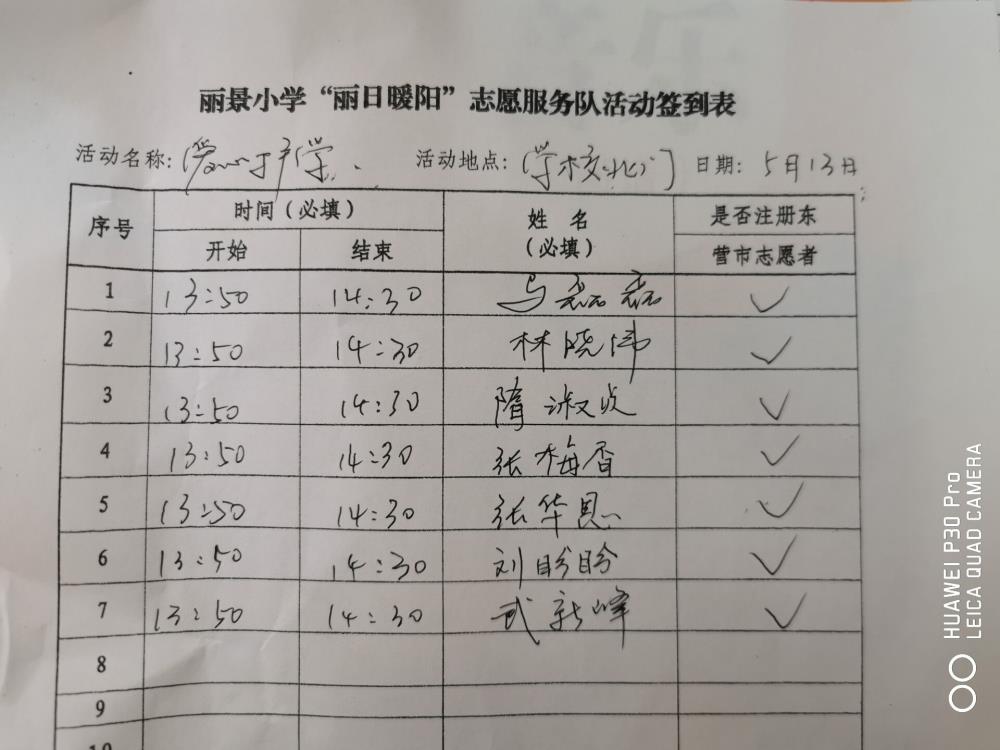 丽景小学“丽日暖阳”志愿服务队活动签到表
活动名称：爱心护学 活动地点：（学校北门） 日期：5月13日
序号 时间（必填） 姓名（必填） 是否注册东营市志愿者
开始 结束
1 13:50 14:30 马磊磊 ✓
2 13:50 14:30 林晓伟 ✓
3 13:50 14:30 隋淑贞 ✓
4 13:50 14:30 张梅香 ✓
5 13:50 14:30 张华恩 ✓
6 13:50 14:30 刘盼盼 ✓
7 13:50 14:30 武新峰 ✓
8
9
10
HUAWEI P30 Pro
LEICA QUAD CAMERA